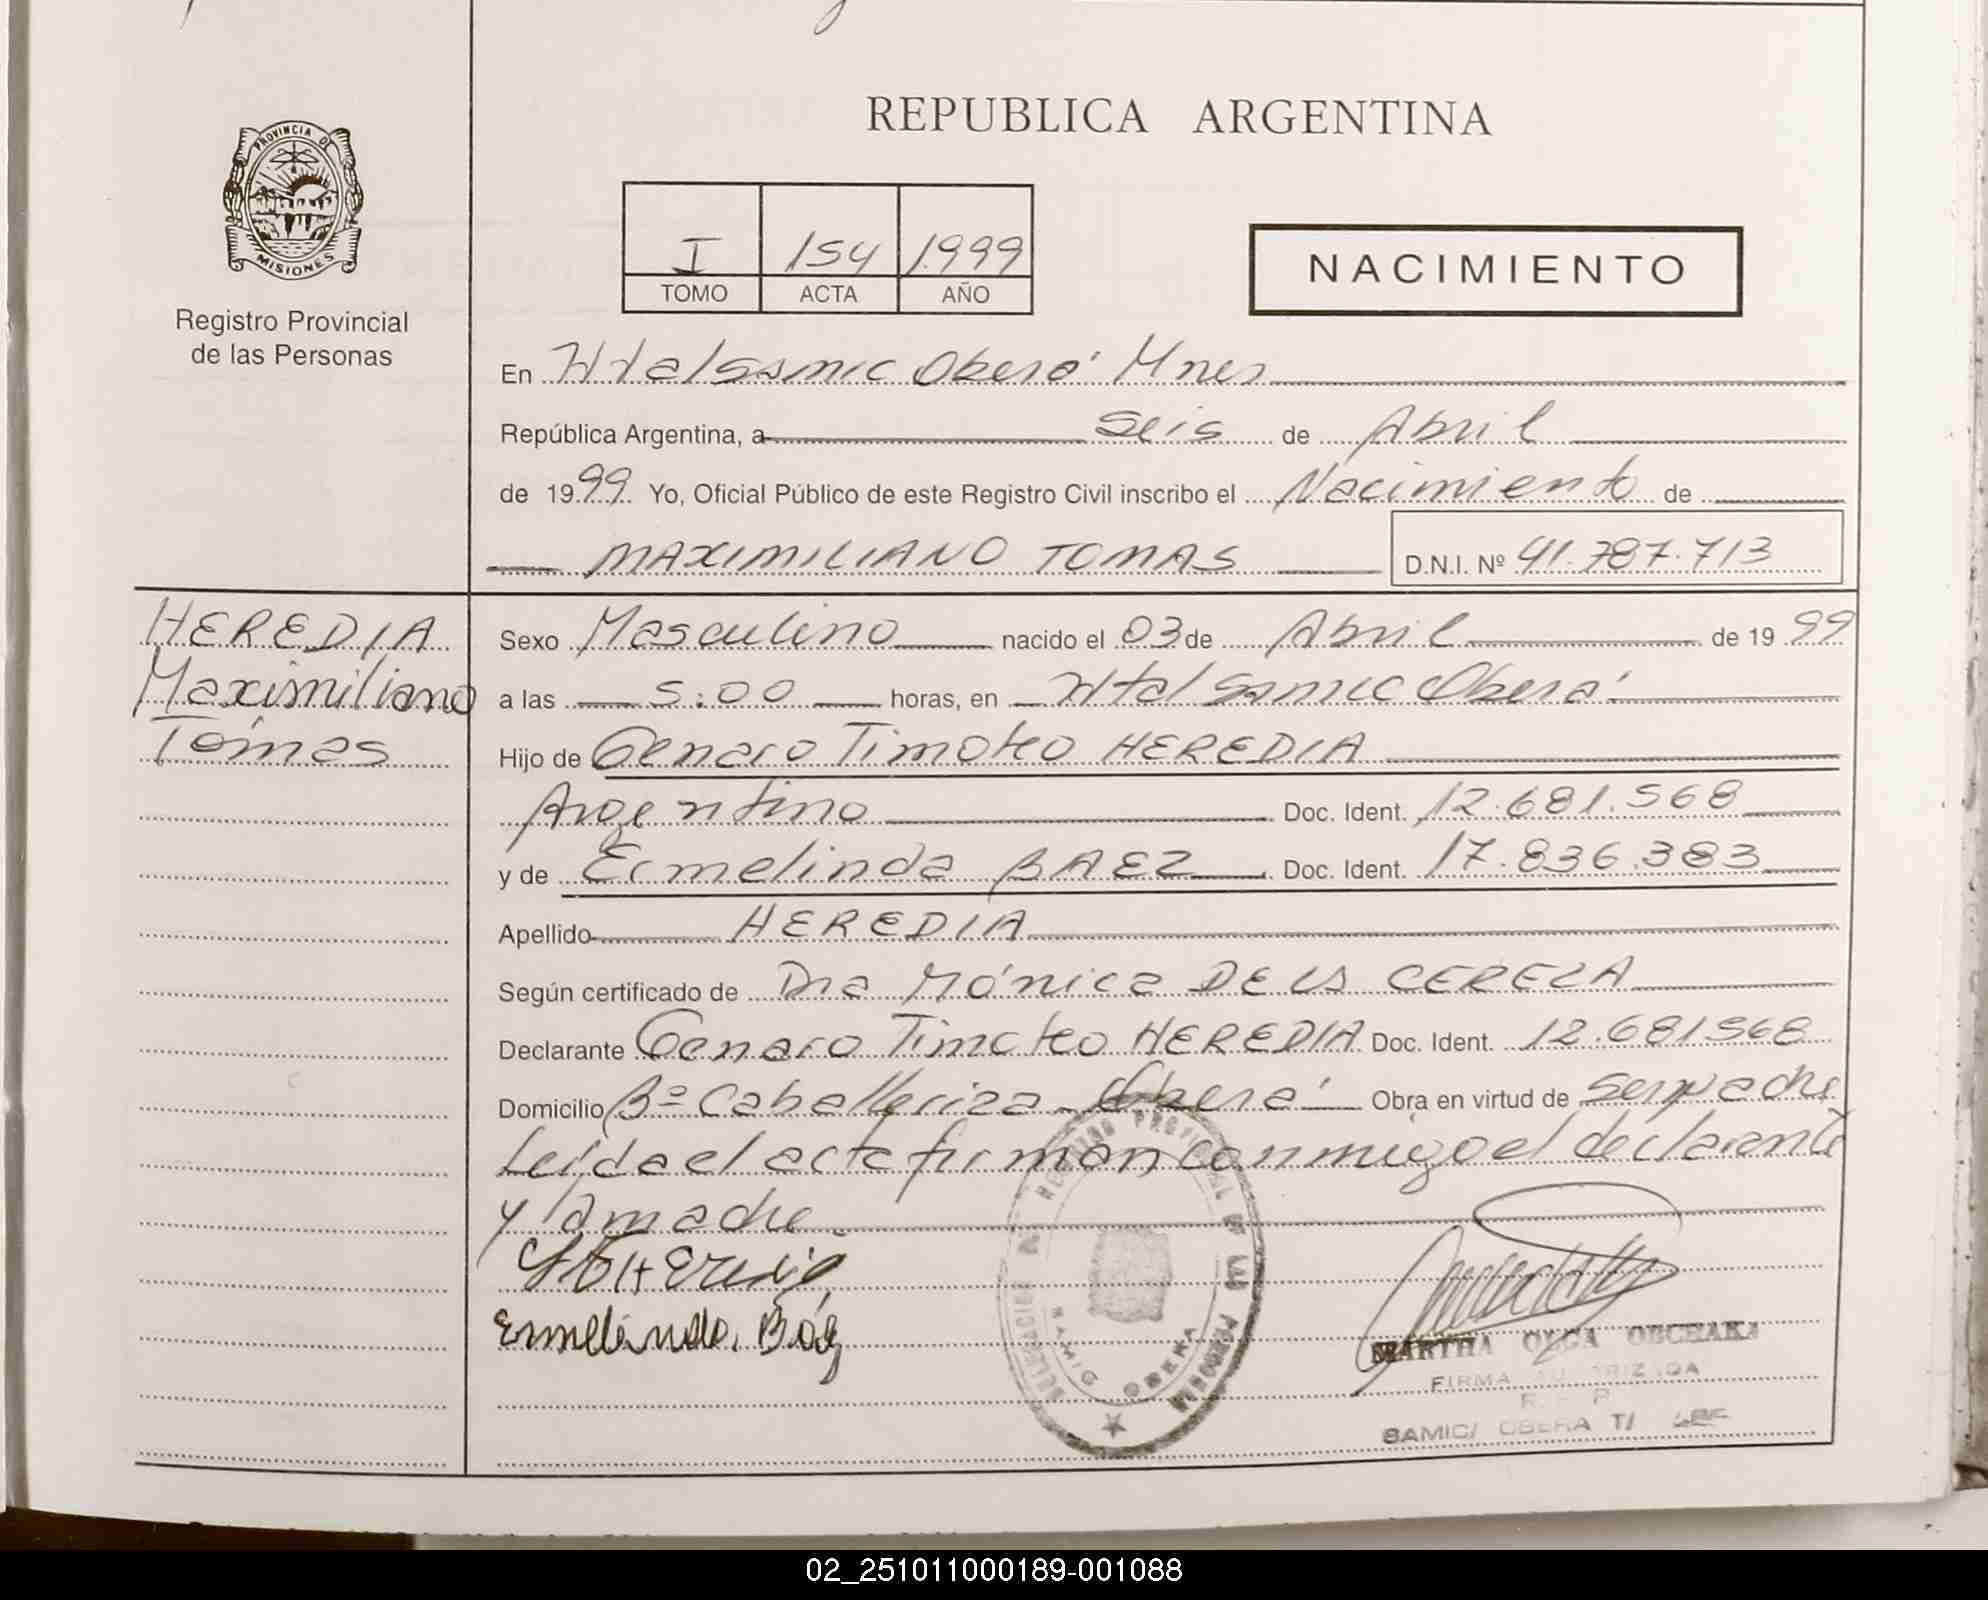 REPUBLICA ARGENTINA
PROVINCIA DE
MISIONES
Registro Provincial
de las Personas
I 154 1.999
TOMO ACTA AÑO
NACIMIENTO
En Htal Samic Oberá Mnes
República Argentina, a seis de Abril
de 1999 Yo, Oficial Público de este Registro Civil inscribo el Nacimiento de
MAXIMILIANO TOMAS D.N.I. Nº 41.787.713
HEREDIA
Maximiliano
Tomas
Sexo Masculino nacido el 03 de Abril de 1999
a las 5:00 horas, en Htal Samic Oberá
Hijo de Genaro Timoteo HEREDIA
Argentino Doc. Ident. 12.681.568
y de Ermelinda BAEZ Doc. Ident. 17.836.383
Apellido HEREDIA
Según certificado de Dra Mónica DE LA CEREZA
Declarante Genaro Timoteo HEREDIA Doc. Ident. 12.681568
Domicilio Bº Caballeriza Oberá Obra en virtud de ser padre
Leída el acta firman conmigo el declarante
y la madre
Heredia
Ermelinda Báez
REGISTRO PROVINCIAL DE LAS PERSONAS
DELEGACION
SAMIC OBERA
MARTHA OLGA OBCHAKA
FIRMA AUTORIZADA
SAMIC/ OBERA
02_251011000189-001088